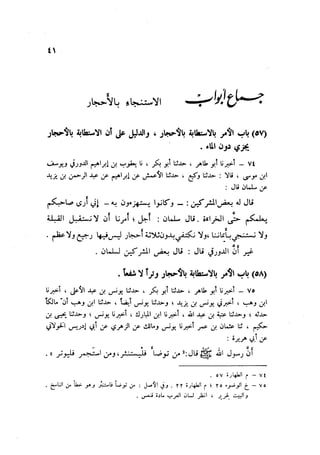 ٤١
جماع أبواب الاستنجاء بالأحجار
(٥٧) باب الأمر بالاستطابة بالأحجار ، والدليل على أن الاستطابة بالأحجار
يجزي دون الماء .
٧٤ - أخبرنا أبو طاهر ، حدثنا أبو بكر ، نا يعقوب بن إبراهيم الدورقي ويوسف
ابن موسى ، قالا : حدثنا وكيع ، حدثنا الأعمش عن إبراهيم عن عبد الرحمن بن يزيد
عن سلمان قال :
قال له بعض المشركين : - وكانوا يستهزءون به - إني أرى صاحبكم
يعلمكم حتى الخراءة . قال سلمان : أجل ؛ أمرنا أن لا نستقبل القبلة
ولا نستنجي بأيماننا ، ولا نكتفي بدون ثلاثة أحجار ليس فيها رجيع ولا عظم .
غير أن الدورقي قال : قال بعض المشركين لسلمان .
(٥٨) باب الأمر بالاستطابة بالأحجار وتراً لا شفعاً .
٧٥ - أخبرنا أبو طاهر ، حدثنا أبو بكر ، حدثنا يونس بن عبد الأعلى ، أخبرنا
ابن وهب ، أخبرني يونس بن يزيد ؛ وحدثنا يونس أيضاً ، حدثنا ابن وهب أن مالكاً
حدثه ؛ وحدثنا عتبة بن عبد الله ، أخبرنا ابن المبارك ، أخبرنا يونس ؛ وحدثنا يحيى بن
حكيم ، ثنا عثمان بن عمر أخبرنا يونس ومالك عن الزهري عن أبي إدريس الخولاني
عن أبي هريرة :
أن رسول الله ﷺ قال : من توضأ فليستنثر ، ومن استجمر فليوتر .
٧٤ - م الطهارة ٥٧ .
٧٥ - خ الوضوء ٢٥ ؛ م الطهارة ٢٢ . وفي الأصل : من توضأ فاستنثر وهو خطأ من الناسخ .